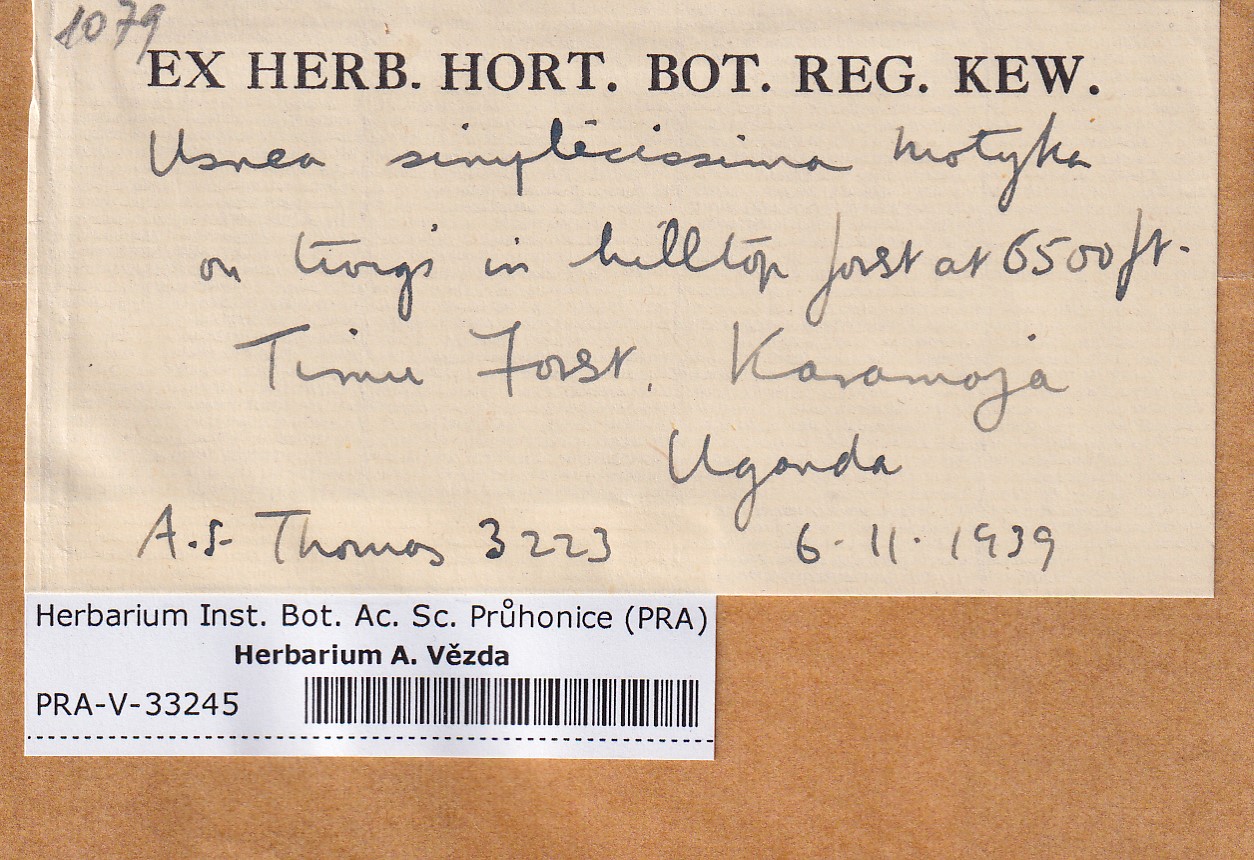 1079
EX HERB. HORT. BOT. REG. KEW.
Usnea simplicissima Motyka
on twigs in hilltop forest at 6500 ft.
Timu Forest. Karamoja
Uganda
A.S. Thomas 3223 6.11.1939
Herbarium Inst. Bot. Ac. Sc. Průhonice (PRA)
Herbarium A. Vězda
PRA-V-33245